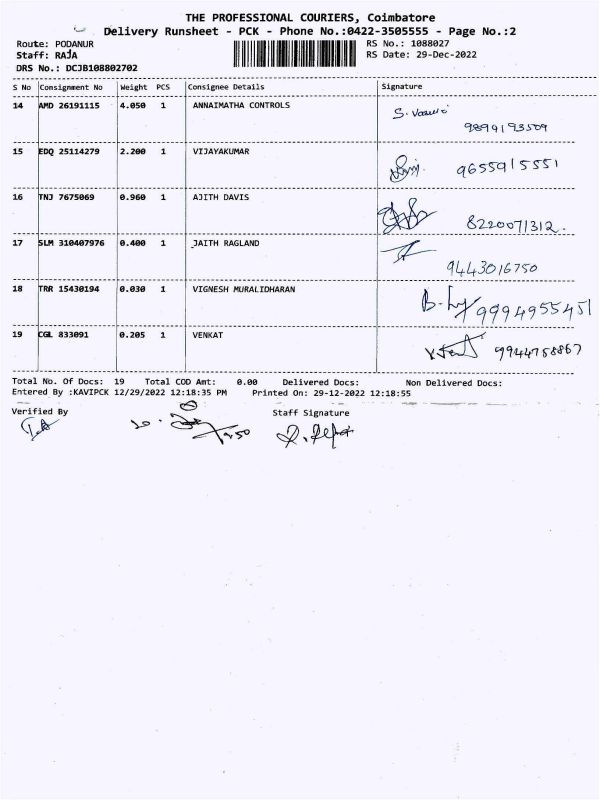 THE PROFESSIONAL COURIERS, Coimbatore
Delivery Runsheet - PCK - Phone No.:0422-3505555 - Page No.:2
Route: PODANUR RS No.: 1088027
Staff: RAJA RS Date: 29-Dec-2022
DRS No.: DCJB108802702
S No Consignment No Weight PCS Consignee Details Signature
14 AMD 26191115 4.050 1 ANNAIMATHA CONTROLS
9899193509
15 EDQ 25114279 2.200 1 VIJAYAKUMAR
9655915551
16 TNJ 7675069 0.960 1 AJITH DAVIS
8220071312.
17 SLM 310407976 0.400 1 JAITH RAGLAND
9443016750
18 TRR 15430194 0.030 1 VIGNESH MURALIDHARAN
9994955451
19 CGL 833091 0.205 1 VENKAT
9944758867
Total No. Of Docs: 19 Total COD Amt: 0.00 Delivered Docs: Non Delivered Docs:
Entered By :KAVIPCK 12/29/2022 12:18:35 PM Printed On: 29-12-2022 12:18:55
Verified By Staff Signature